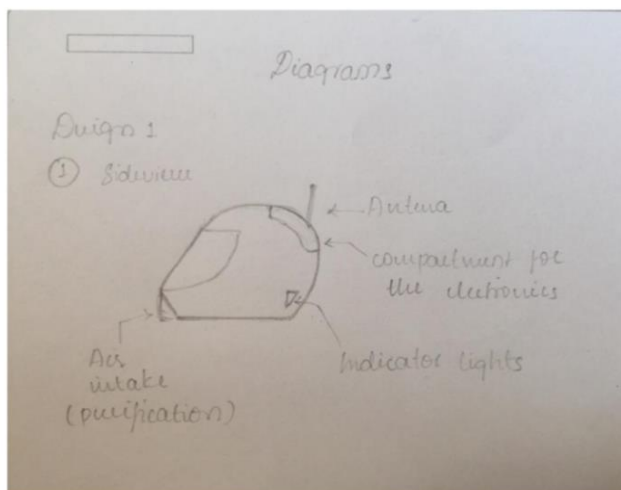 Diagrams
Design 1
① Sideview
Antena
compartment for
the electronics
Indicator lights
Air
intake
(purification)